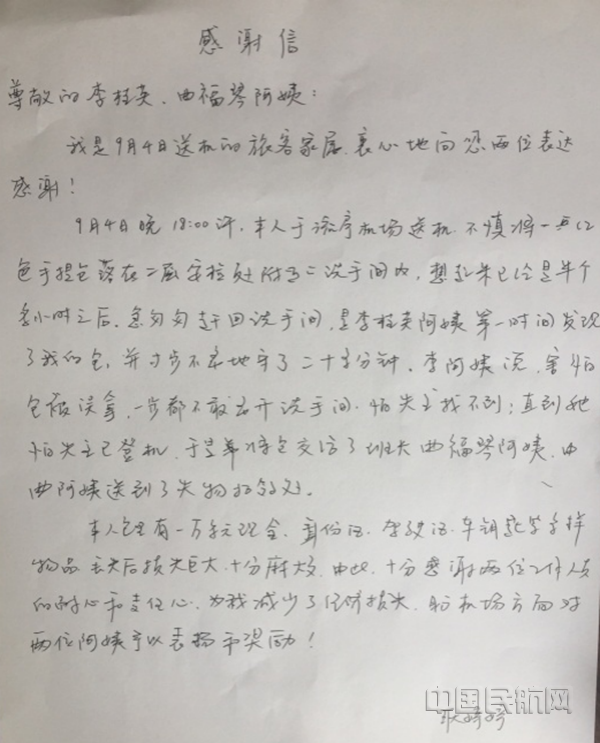 感谢信
尊敬的李桂英、曲福琴阿姨：
我是9月4日送机的旅客家属，衷心地向您两位表达
感谢！
9月4日晚18:00许，本人于流亭机场送机，不慎将一红
色手提包落在二层安检处附近洗手间内，想起来已经是半个
多小时之后，急匆匆赶回洗手间，是李桂英阿姨第一时间发现
了我的包，并寸步不离地守了二十多分钟。李阿姨说，害怕
包被误拿，一步都不敢离开洗手间，怕失主找不到；直到她
怕失主已登机，于是将包交给了班长曲福琴阿姨，由
曲阿姨送到了失物招领处。
本人包里有一万多元现金、身份证、驾驶证、车钥匙等多样
物品，丢失后损失巨大，十分麻烦。由此，十分感谢两位工作人员
的耐心和责任心，为我减少了经济损失，盼机场方面对
两位阿姨予以表扬和奖励！
中国民航网